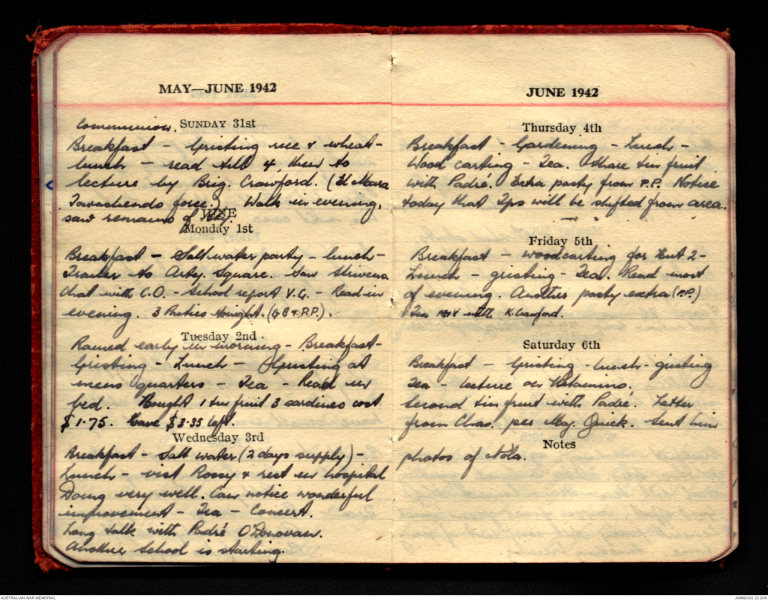 MAY—JUNE 1942
Communion. SUNDAY 31st
Breakfast - Gristing rice & wheat -
lunch - read till 4, then to
lecture by Brig. Crawford. (El Mara
force.) Walk in evening,
saw remains of
JUNE
Monday 1st
Breakfast - Salt water party - lunch -
Trailer to Arty. Square. Saw Stevens
Chat with C.O. - School report V.G. - Read in
evening. 3 Parties tonight. (G B & P.P.).
Tuesday 2nd
Rained early in morning - Breakfast -
Gristing - Lunch - Gristing at
mens quarters - Tea - Read in
bed. Bought 1 tin fruit 3 sardines cost
$1.75. Have $3.35 left.
Wednesday 3rd
Breakfast - Salt water (2 days supply) -
Lunch - visit Rossy & rest in hospital
Doing very well. Can notice wonderful
improvement - Tea - Concert.
Long talk with Padré O'Donovan.
Another School is starting.
JUNE 1942
Thursday 4th
Breakfast - Gardening - Lunch -
Wood carting - Tea. Share tin fruit
with Padré. Extra party from P.P. Notice
today that Ips will be shifted from area.
Friday 5th
Breakfast - woodcarting for Hut 2 -
Lunch - gristing - Tea. Read most
of evening. Another party extra (P.P.)
Tea with K. Crawford.
Saturday 6th
Breakfast - Gristing - lunch - gristing
Tea - lecture on
Second tin fruit with Padré. Letter
from Chas. per Maj. Quick. Sent him
Notes
photos of Nola.
AUSTRALIAN WAR MEMORIAL